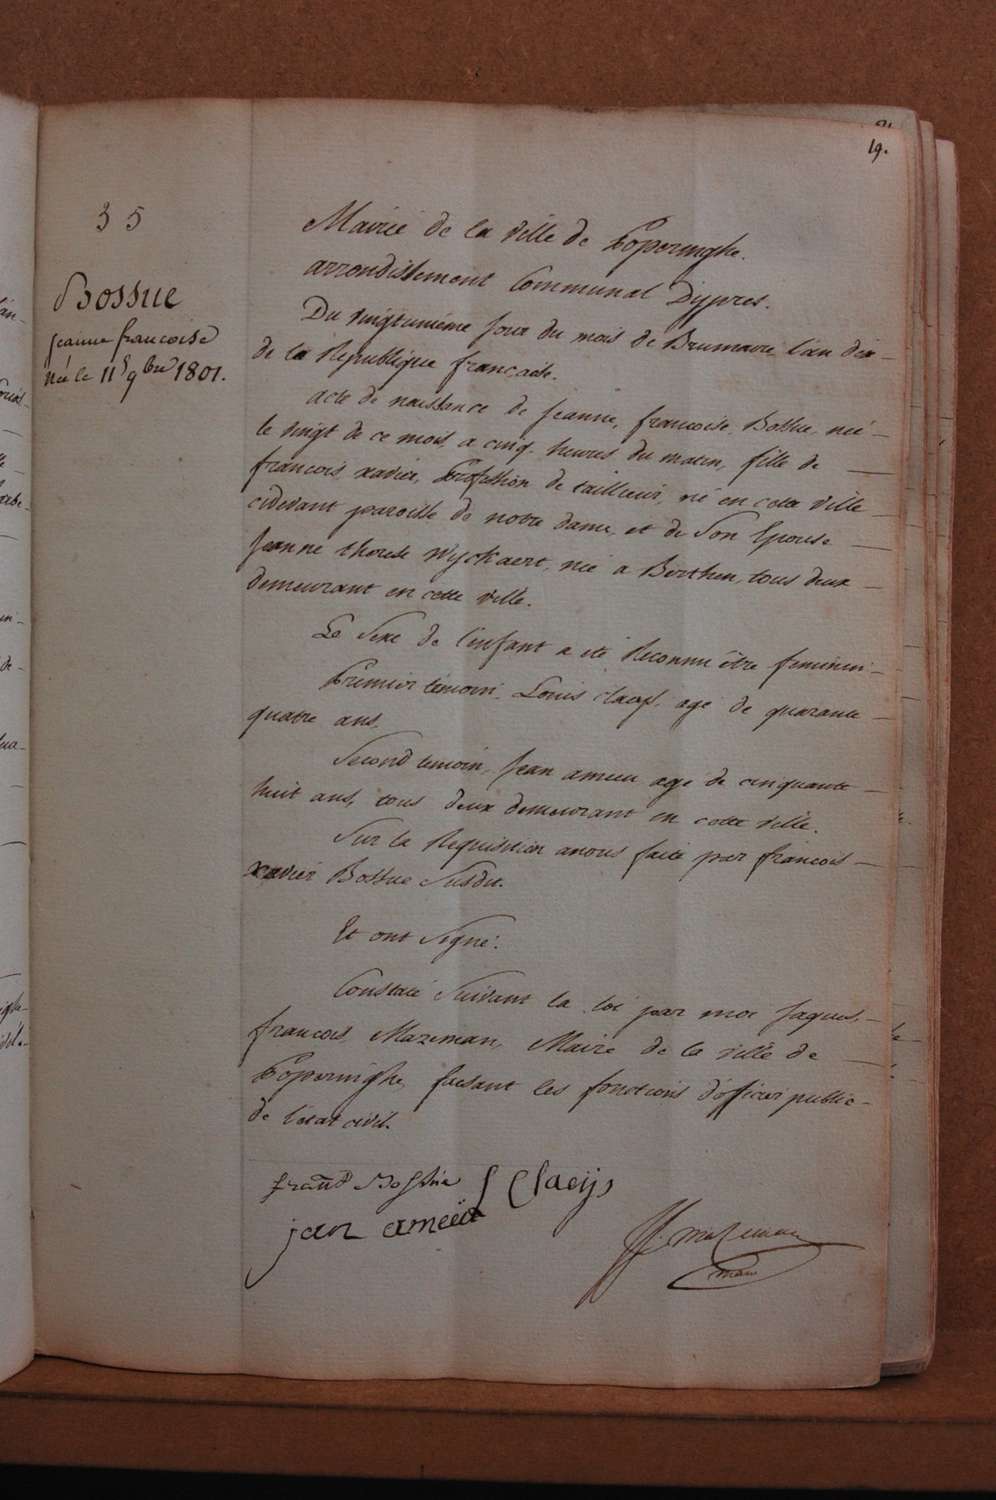 19.
35
Bossue
jeanne francoise
Née le 11 9bre 1801.
Mairie de la ville de Poperinghe.
arrondissement Communal Dijpres.
Du vingtunième jour du mois de Brumaire l'an dix-
de la Republique française.
acte de naissance de jeanne, francoise Bossue née
le vingt de ce mois a cinq heures du matin, fille de
francois, xavier, profession de tailleur, né en cette ville
cidevant paroisse de notre dame, et de Son Epouse
jeanne therese Wyckaert, née a Berthen, tous deux
demeurant en cette ville.
Le Sexe de l'enfant a été Reconnu être feminin.
Premier témoin, Louis Claeys, agé de quarante
quatre ans.
Second temoin, jean ameeu agé de cinquante
huit ans, tous deux demeurant en cette ville.
Sur la Requisition anous faite par francois
xavier Bossue Susdit.
Et ont Signé.
Constaté Suivant la loi par moi jaques,
francois, Mazeman, Maire de la ville de
Poperinghe, faisant les fonctions d'officier public
de l'état civil.
Bossue L Claeijs
jan
Mazeman
maire